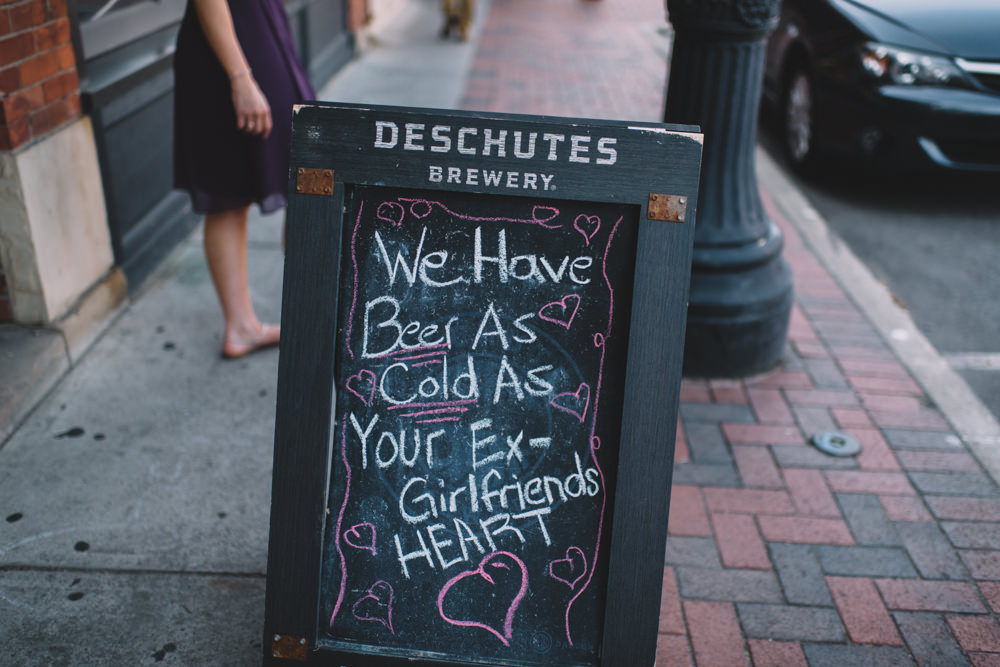 DESCHUTES
BREWERY
We Have
Beer As
Cold As
Your Ex-
Girlfriends
HEART